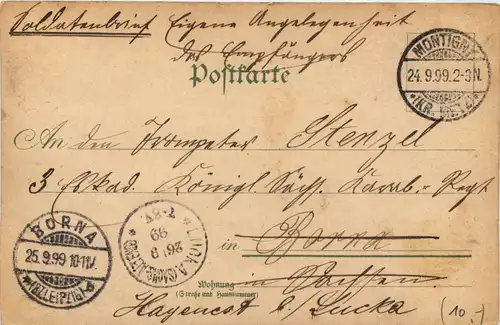 Soldatenbrief Eigene Angelegenheit
des Empfängers
Postkarte
MONTIGNY
24.9.99.2-3N.
*(KR. METZ)*
An den Trompeter Stenzel
3 Eskad. Königl. Sächs. Karab.-Regt
BORNA
25.9.99 10-11V.
*(BZ. LEIPZIG)*
LUCKA (SACHS.-ALTENBG)
26 9
99
7-8V.
in Borna
in Sachsen
Wohnung
(Straße und Hausnummer)
b/Lucka
10.-